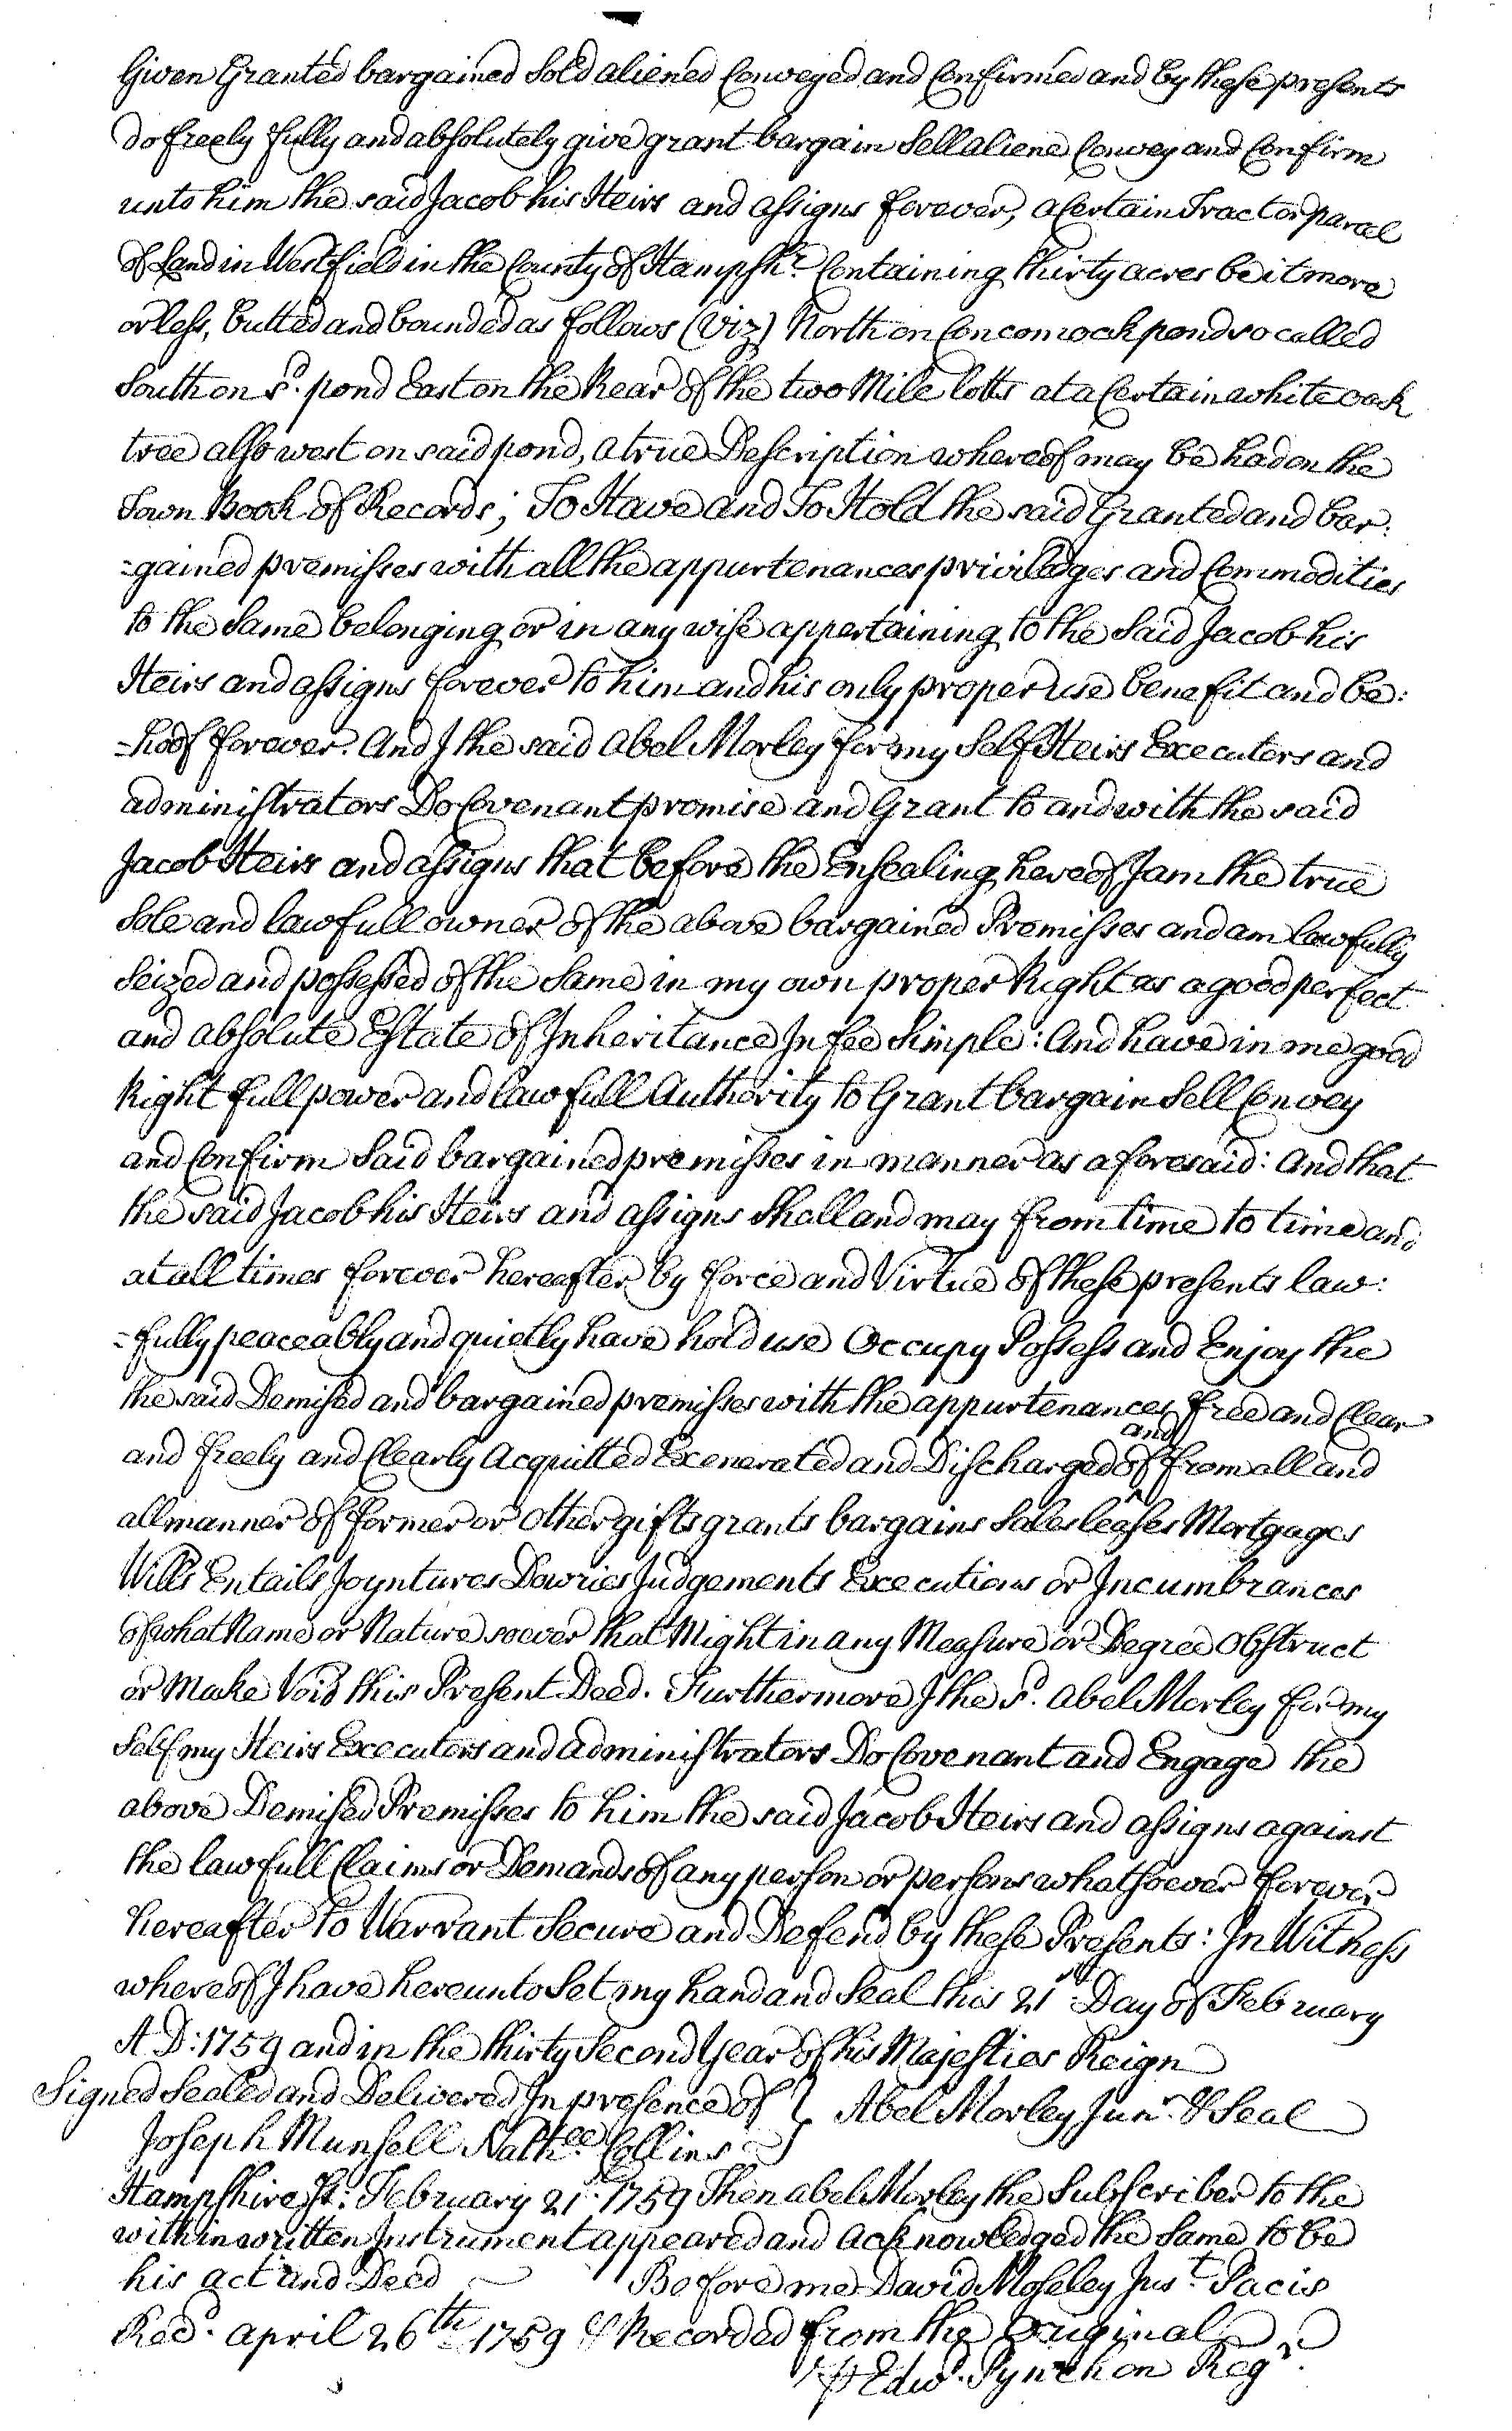 Given Granted bargained Sold aliened Conveyed and Confirmed and by these presents
do freely fully and absolutely give grant bargain Sell aliene Convey and Confirm
unto him the said Jacob his Heirs and assigns forever, a Certain Tract or parcel
of Land in Westfield in the County of Hampshr. Containing thirty acres be it more
or less, butted and bounded as follows (Viz) North on Concomock pond so called
South on sd. pond East on the Rear of the two Mile lotts at a Certain white oak
tree also west on said pond, a true Description whereof may be had on the
Town Book of Records; To Have and To Hold the said Granted and bar:
=gained premisses with all the appurtenances priviledges and Commodities
to the Same belonging or in any wise appertaining to the Said Jacob his
Heirs and assigns forever to him and his only proper use benefit and be:
=hoof forever. And I the said Abel Morley for my Self Heirs Executors and
administrators Do Covenant promise and Grant to and with the said
Jacob Heirs and assigns that before the Ensealing hereof I am the true
Sole and lawfull owner of the above bargained Premisses and am lawfully
Seized and possessed of the Same in my own proper Right as a good perfect
and absolute Estate of Inheritance In fee Simple: And have in me good
Right full power and lawfull Authority to Grant bargain Sell Convey
and Confirm Said bargained premisses in manner as aforesaid: And that
the said Jacob his Heirs and assigns Shall and may from time to time and
at all times forever hereafter by force and Virtue of these presents law:
=fully peaceably and quietly have hold use Occupy Possess and Enjoy the
the said Demised and bargained premisses with the appurtenances free and Clear
and freely and Clearly Acquitted Exenerated and Discharged of and from all and
all manner of former or other gifts grants bargains Sales leases Mortgages
Wills Entails Joyntures Dowries Judgements Executions or Incumbrances
of what Name or Nature soever that Might in any Measure or Degree Obstruct
or Make Void this Present Deed. Furthermore I the sd. Abel Morley for my
Self my Heirs Executors and administrators Do Covenant and Engage the
above Demised Premisses to him the said Jacob Heirs and assigns against
the lawfull Claims or Demands of any person or persons whatsoever forever
hereafter to Warrant Secure and Defend by these Presents: In Witness
whereof I have hereunto Set my hand and Seal this 21st Day of February
A D: 1759 and in the thirty Second Year of his Majesties Reign
Signed Sealed and Delivered In presence of } Abel Morley Junr. & Seal
Joseph Munsell Nathll Collins
Hampshire Ss: February 21st 1759 Then abel Morley the Subscriber to the
within written Instrument appeared and acknowledged the Same to be
his act and Deed Before me David Moseley Just. Pacis
Recd. april 26th 1759 & Recorded from the Original
P Edwd. Pynchon Regr.